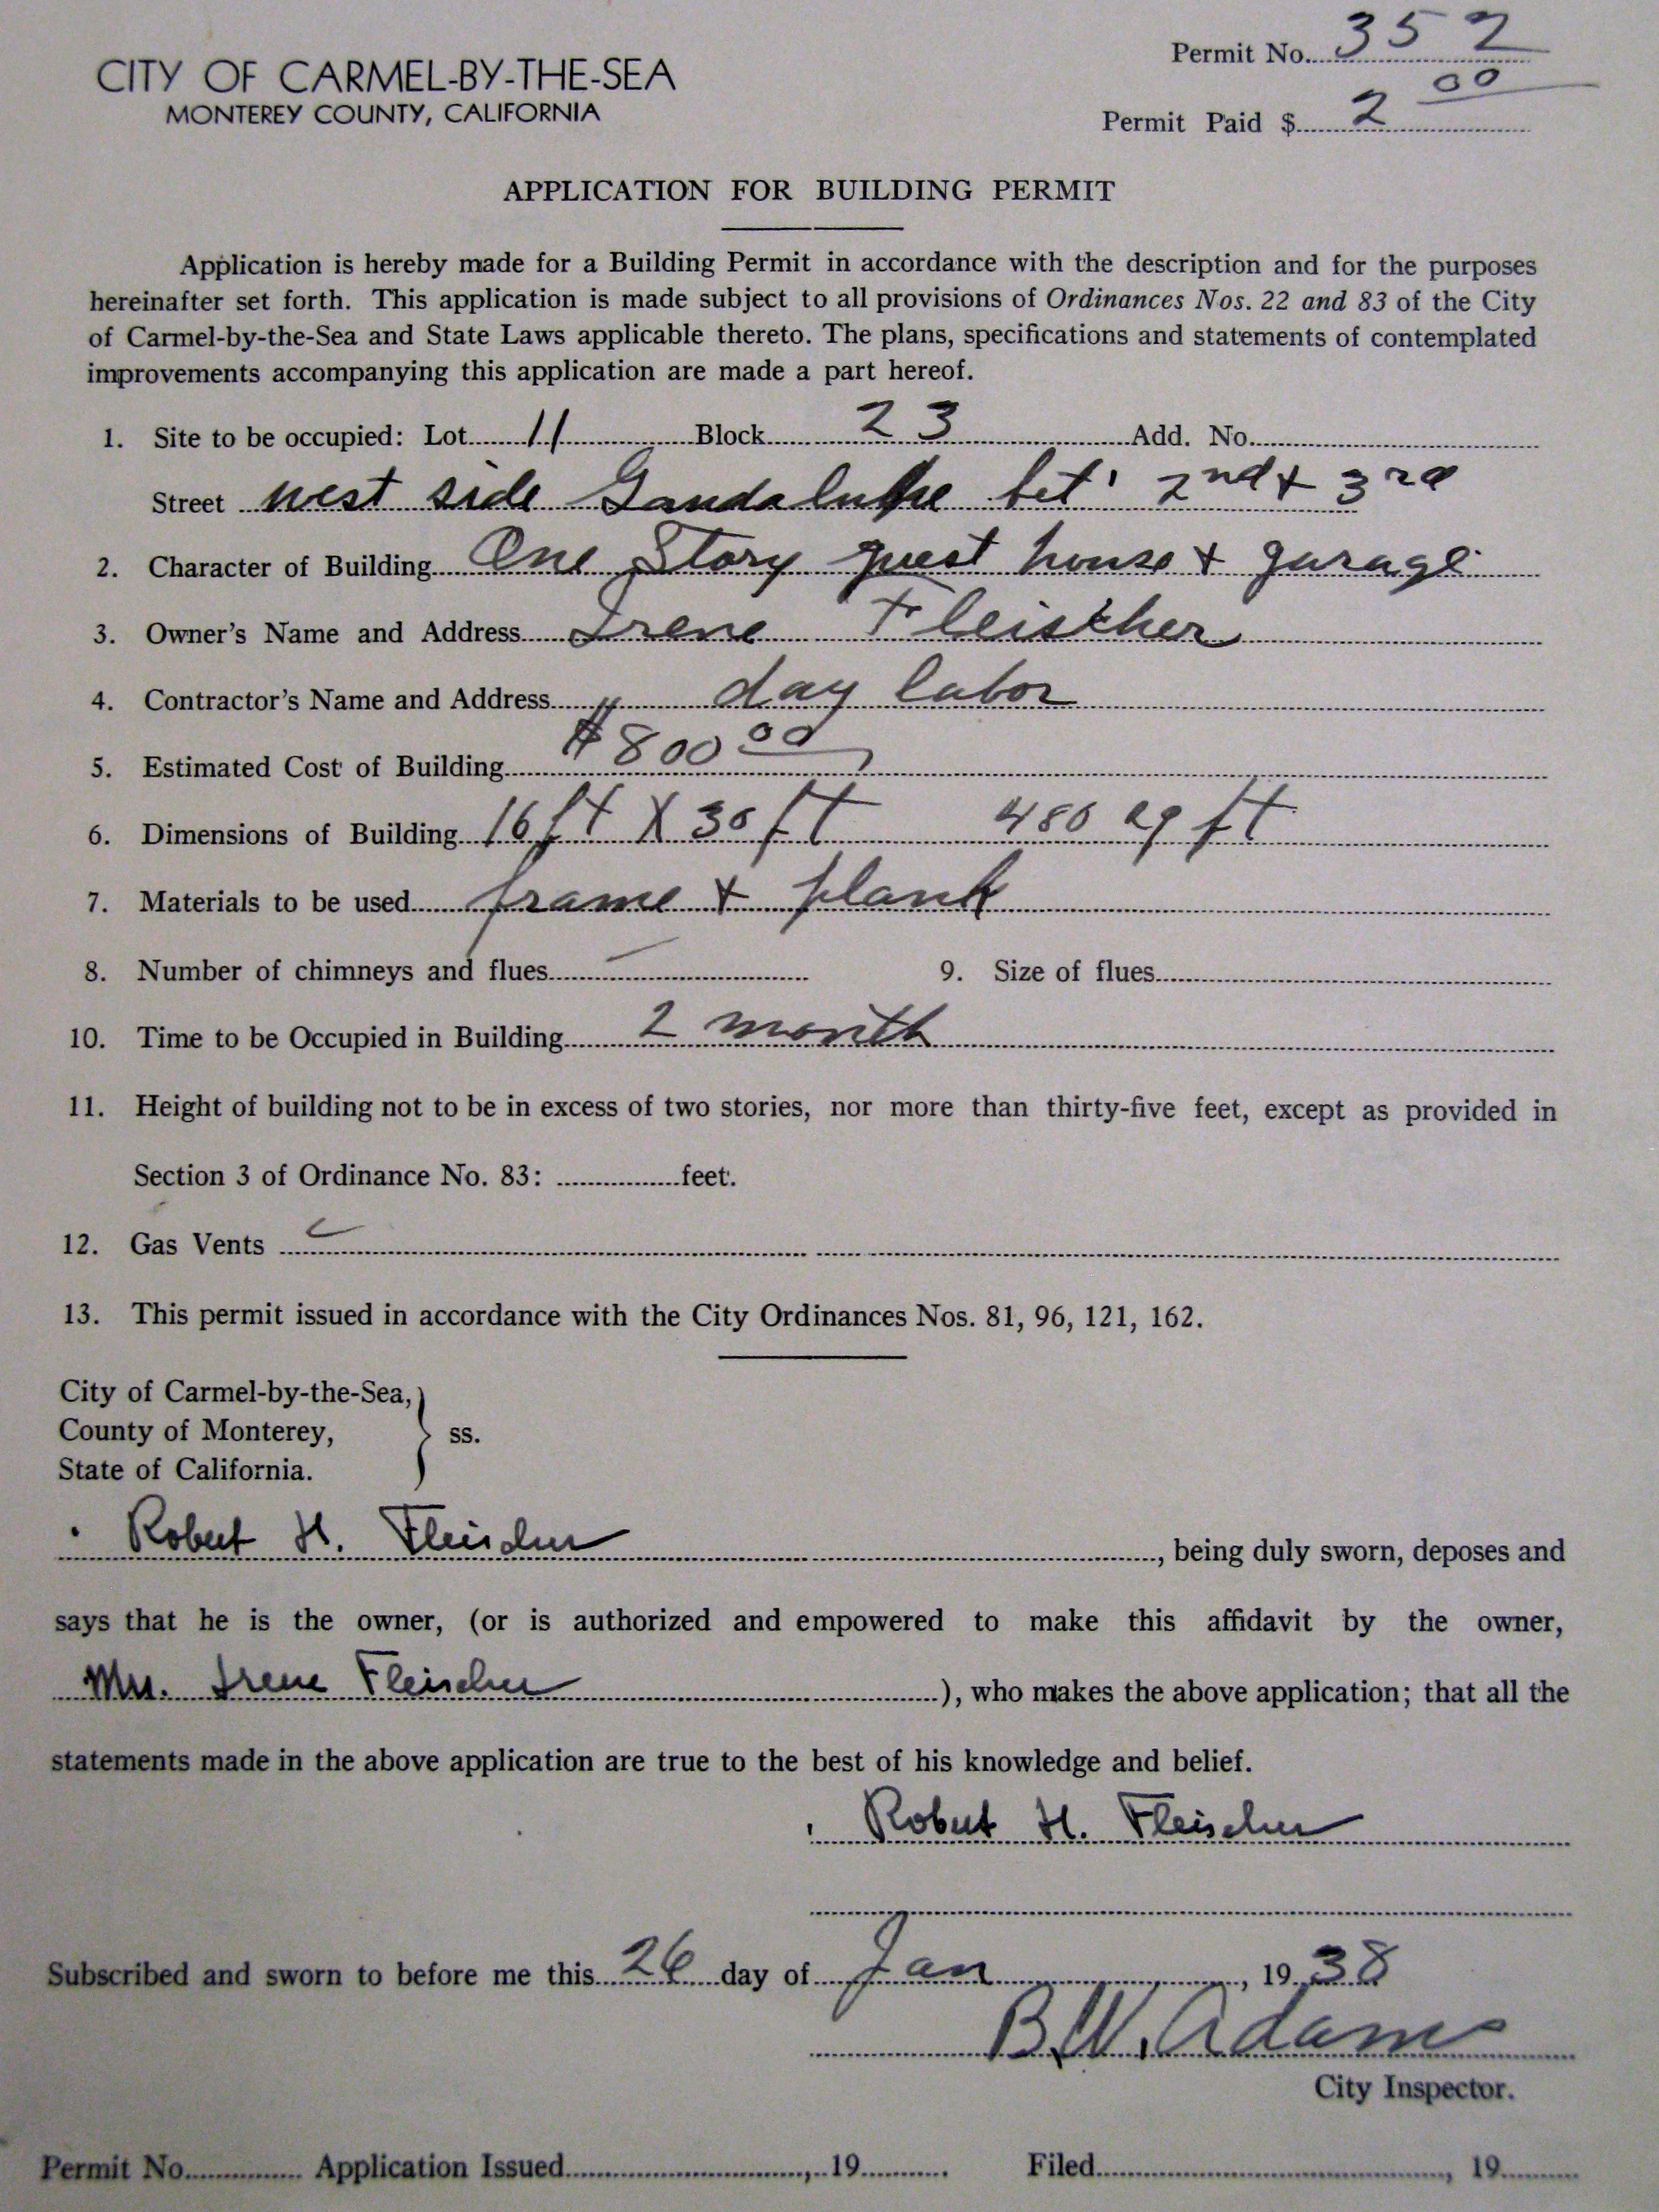 CITY OF CARMEL-BY-THE-SEA
MONTEREY COUNTY, CALIFORNIA
Permit No. 352
Permit Paid $ 2 00
APPLICATION FOR BUILDING PERMIT
Application is hereby made for a Building Permit in accordance with the description and for the purposes
hereinafter set forth. This application is made subject to all provisions of Ordinances Nos. 22 and 83 of the City
of Carmel-by-the-Sea and State Laws applicable thereto. The plans, specifications and statements of contemplated
improvements accompanying this application are made a part hereof.
1. Site to be occupied: Lot 11 Block 23 Add. No.
Street west side Gaudalupe bet' 2nd + 3rd
2. Character of Building One Story guest house + garage
3. Owner's Name and Address Irene Fleischer
4. Contractor's Name and Address day labor
5. Estimated Cost of Building $800 00
6. Dimensions of Building 16 ft X 30 ft 480 sq ft
7. Materials to be used frame + plank
8. Number of chimneys and flues — 9. Size of flues
10. Time to be Occupied in Building 2 month
11. Height of building not to be in excess of two stories, nor more than thirty-five feet, except as provided in
Section 3 of Ordinance No. 83: feet.
12. Gas Vents
13. This permit issued in accordance with the City Ordinances Nos. 81, 96, 121, 162.
City of Carmel-by-the-Sea,
County of Monterey, } ss.
State of California.
Robert H. Fleischer, being duly sworn, deposes and
says that he is the owner, (or is authorized and empowered to make this affidavit by the owner,
Mrs. Irene Fleischer), who makes the above application; that all the
statements made in the above application are true to the best of his knowledge and belief.
Robert H. Fleischer
Subscribed and sworn to before me this 26 day of Jan, 1938
B.W. Adams
City Inspector.
Permit No. Application Issued, 19 Filed, 19